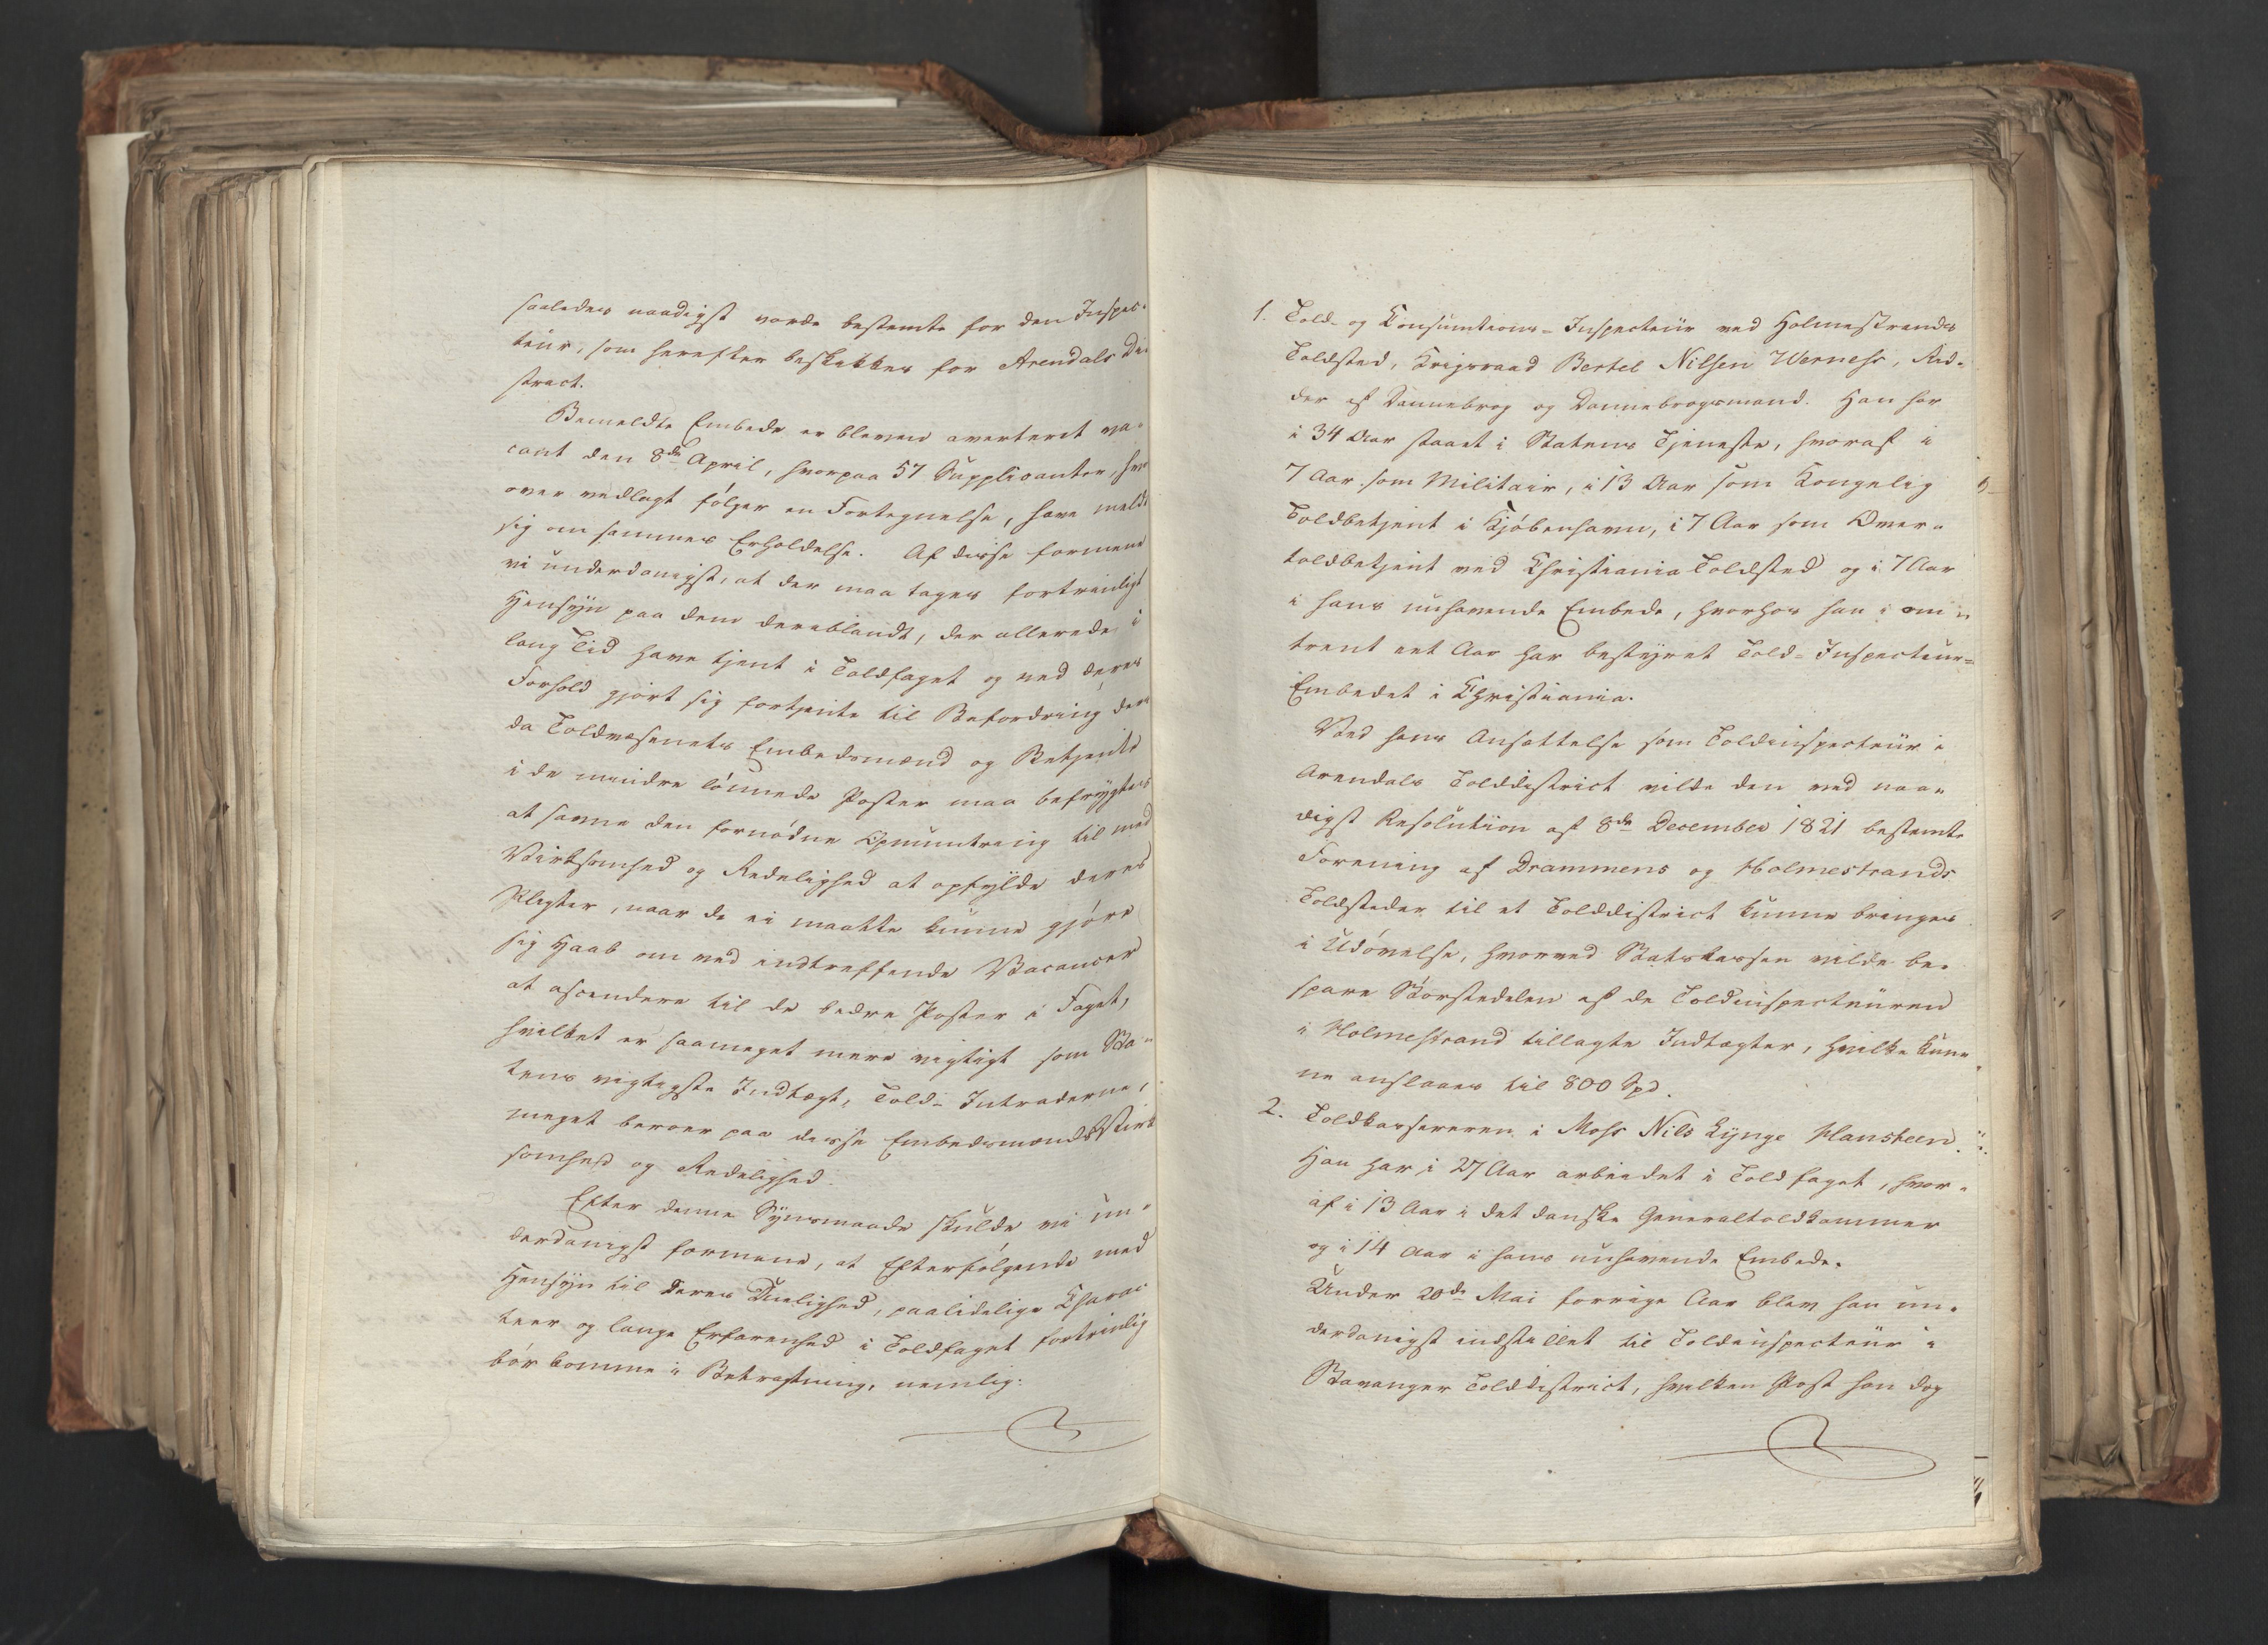 saaledes naadigst vorde bestemte for den Inspec-
teur, som herefter beskikkes for Arendals Di-
strict.
Bemeldte Embede er bleven averteret va-
cant den 8de April, hvorpaa 57 Supplicanter, hvor
over vedlagt følger en Fortegnelse, have meldt
sig om sammes Erholdelse. Af disse formene
vi underdanigst, at der maa tages fortrinligt
Hensyn paa dem deriblandt, der allerede i
lang Tid have tjent i Toldfaget og ved deres
Forhold gjort sig fortjente til Befordring der-
da Toldvæsenets Embedsmænd og Betjente
i de mindre lønnede Poster maa befrygtes
at savne den fornødne Opmuntring til med
Virksomhed og Redelighed at opfylde deres
Pligter, naar de ei maatte kunne gjøre
sig Haab om ved indtreffende Vacancer
at ascendere til de bedre Poster i Faget,
hvilket er saameget mere vigtigt som Sta-
tens vigtigste Indtægt, Told-Intraderne,
meget beroer paa disse Embedsmænds Virk
somhed og Redelighed.
Efter denne Synsmaade skulde vi un-
derdanigst formene, at Efterfølgende med
Hensyn til deres Duelighed, paalidelige Charac
teer og lange Erfarenhed i Toldfaget fortrinlig
bør komme i Betragtning, nemlig:
1. Told- og Consumtions-Inspecteur ved Holmestrands
Toldsted, Krigsraad Bertel Nilsen Werness, Rid-
der af Dannebrog og Dannebrogsmand. Han har
i 34 Aar staaet i Statens Tjeneste, hvoraf i
7 Aar som Militair, i 13 Aar som Kongelig
Toldbetjent i Kjøbenhavn, i 7 Aar som Over-
toldbetjent ved Christiania Toldsted og i 7 Aar
i hans nuhavende Embede, hvorhos han i om-
trent eet Aar har bestyret Told-Inspecteur-
Embedet i Christiania.
Ved hans Ansættelse som Toldinspecteur i
Arendals Tolddistrict vilde den ved naa-
digst Resolution af 8de December 1821 bestemte
Forening af Drammens og Holmestrands
Toldsteder til et Tolddistrict kunne bringes
i Udøvelse, hvorved Statskassen vilde be-
spare Størstedelen af de Toldinspecteuren
i Holmestrand tillagte Indtægter, hvilke kun-
ne anslaaes til 800 Spd.
2. Toldkassereren i Moss Nils Lynge Hansteen.
Han har i 27 Aar arbeidet i Toldfaget, hvor-
af i 13 Aar i det danske Generaltoldkammer
og i 14 Aar i hans nuhavende Embede.
Under 20de Mai forrige Aar blev han un-
derdanigst indstillet til Toldinspecteur i
Stavanger Tolddistrict, hvilken Post han dog